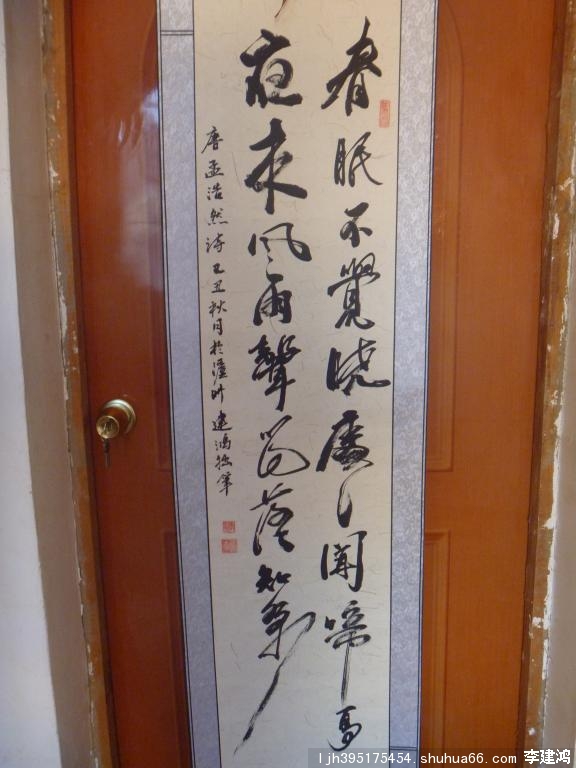 春眠不覺曉處々聞啼鳥
夜来风雨聲花落知多少
唐孟浩然诗己丑秋月於瀘州建鴻拙筆
ljh395175454.shuhua66.com 李建鸿